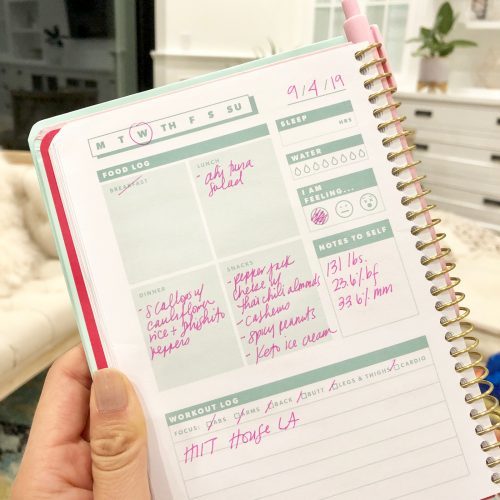 9/4/19
M T W TH F S SU
FOOD LOG
BREAKFAST
LUNCH
- ahi tuna
salad
DINNER
- scallop w/
cauliflower
rice + shishito
peppers
SNACKS
- pepper jack
cheese w/
thai chili almonds
- cashews
- spicy peanuts
- Keto ice cream
SLEEP
HRS
WATER
I AM
FEELING...
NOTES TO SELF
131 lbs.
23.6% bf
33.6% mm
WORKOUT LOG
FOCUS: ABS ARMS BACK BUTT LEGS & THIGHS CARDIO
HIIT House LA